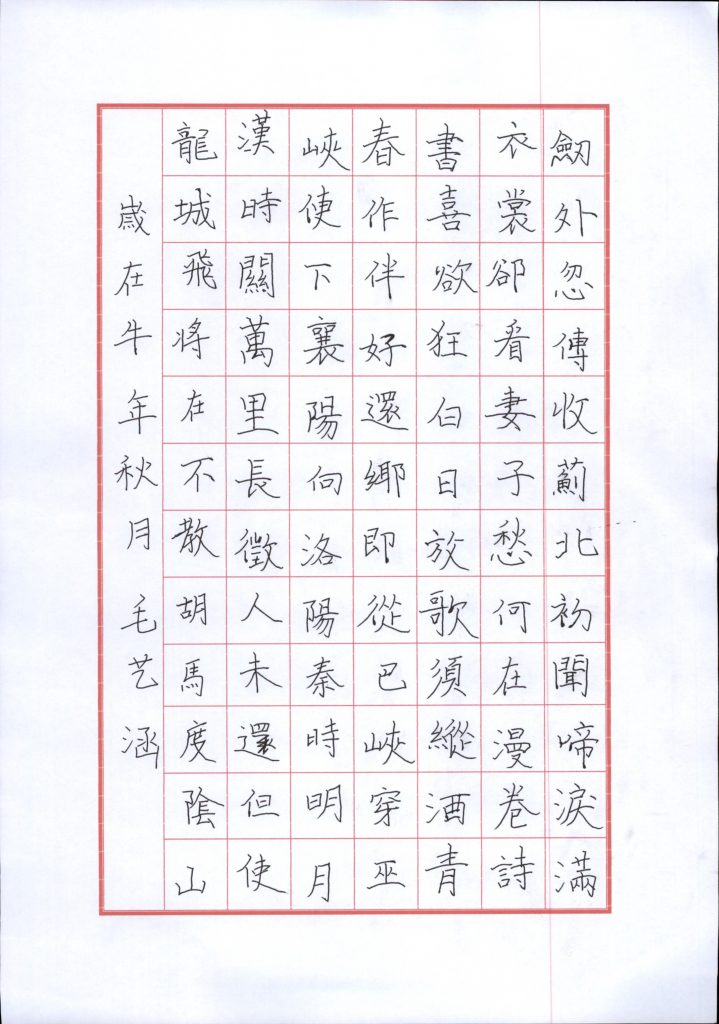 劒外忽傳收薊北初聞啼淚滿
衣裳卻看妻子愁何在漫卷詩
書喜欲狂白日放歌須縱酒青
春作伴好還鄉即從巴峽穿巫
峽使下襄陽向洛陽秦時明月
漢時關萬里長徵人未還但使
龍城飛将在不散胡馬度陰山
歲在牛年秋月毛艺涵